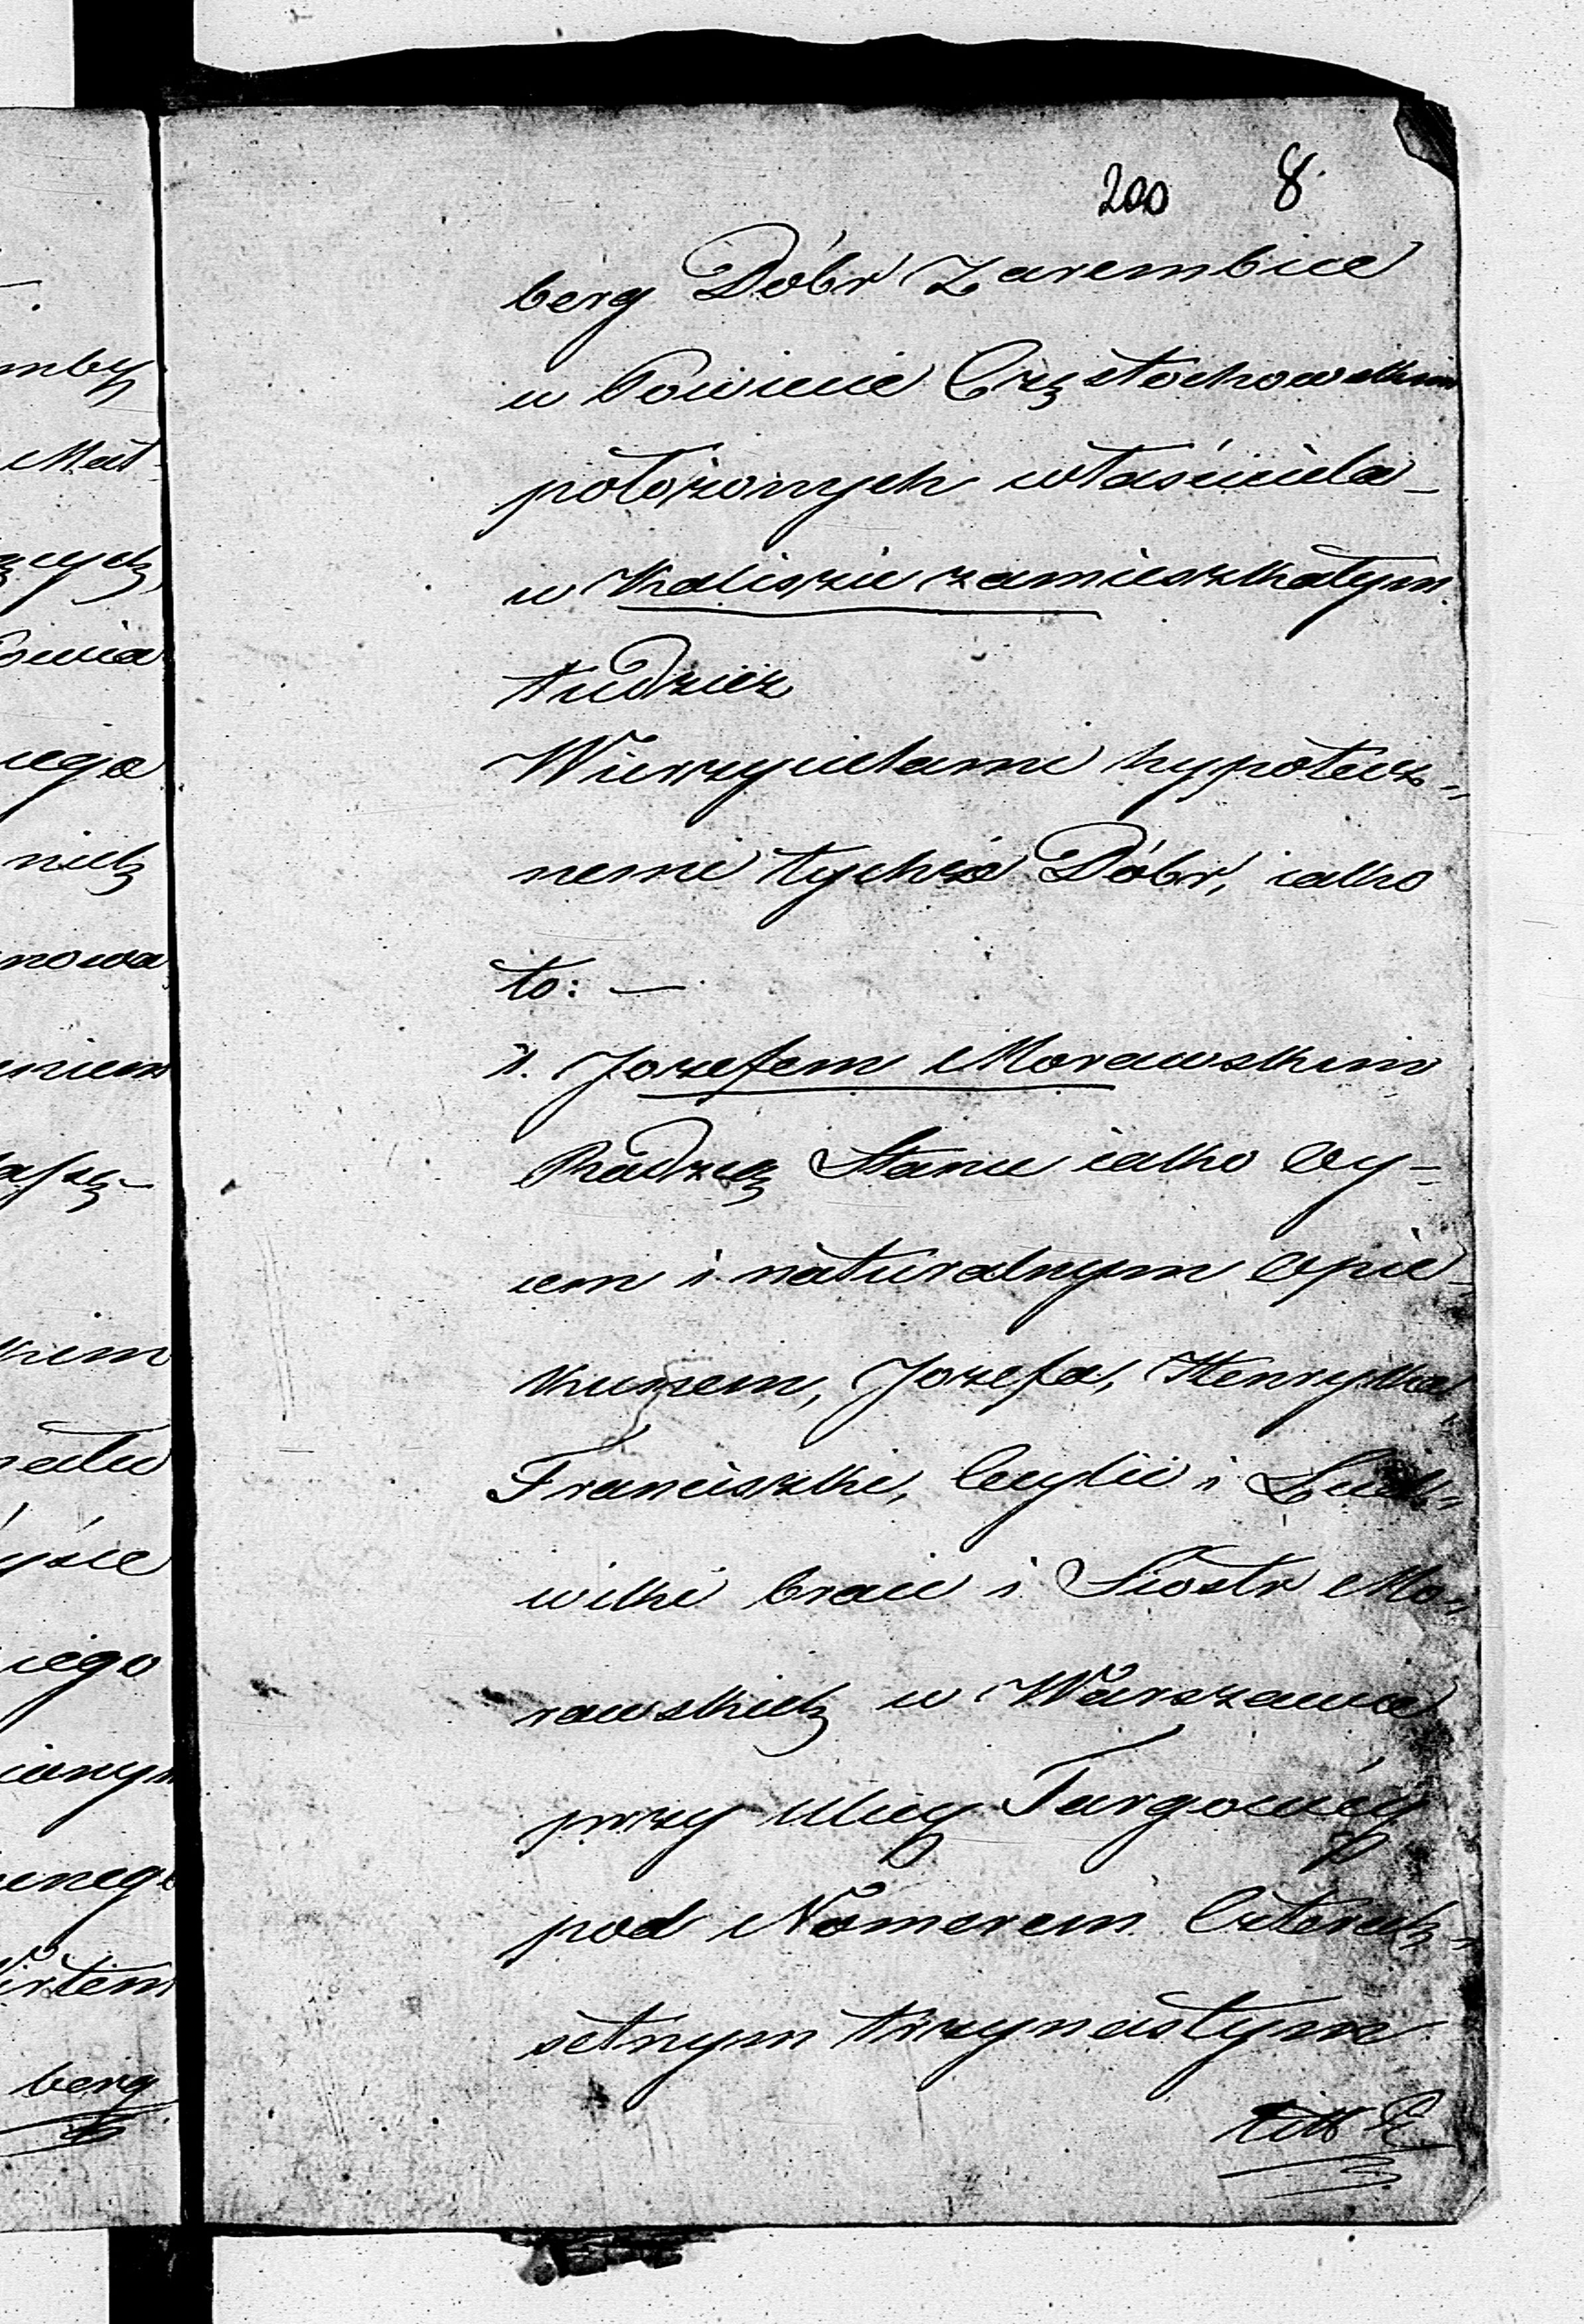 200 8
berg Dóbr Zarembice
w Powiecie Częstochowskim
położonych właściciela
w Kaliszu zamieszkałym
tudzież
Wierzycielami hypotecz„
nemi tychże Dóbr, iako
to: —
1. Jozefem Morawskim
Radzcą Stanu iako Oy-
cem i naturalnym Opie-
kunem, Jozefa, Henryka,
Franciszki, Cecylii i Lud„
wiki braci i Siostr Mo„
rawskich w Warszawie
przy Ulicy Targowéy
pod Nomerem Czterech„
setnym trzynastym
mby
Mat
nich
nowa
iego
berg